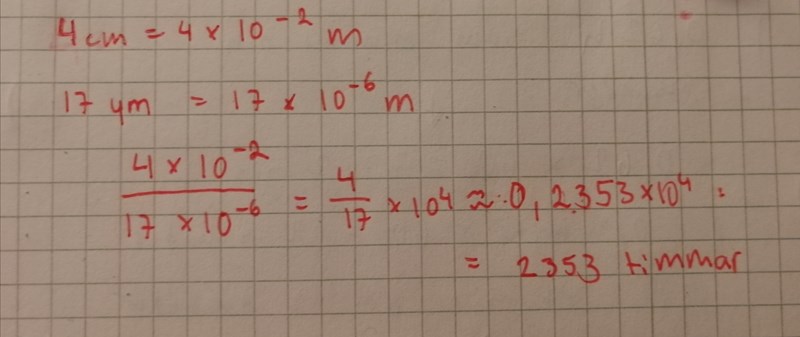 4 cm = 4 × 10⁻² m
17 ym = 17 × 10⁻⁶ m
4 × 10⁻² / 17 × 10⁻⁶ = 4/17 × 10⁴ ≈ 0,2353 × 10⁴ =
= 2353 timmar